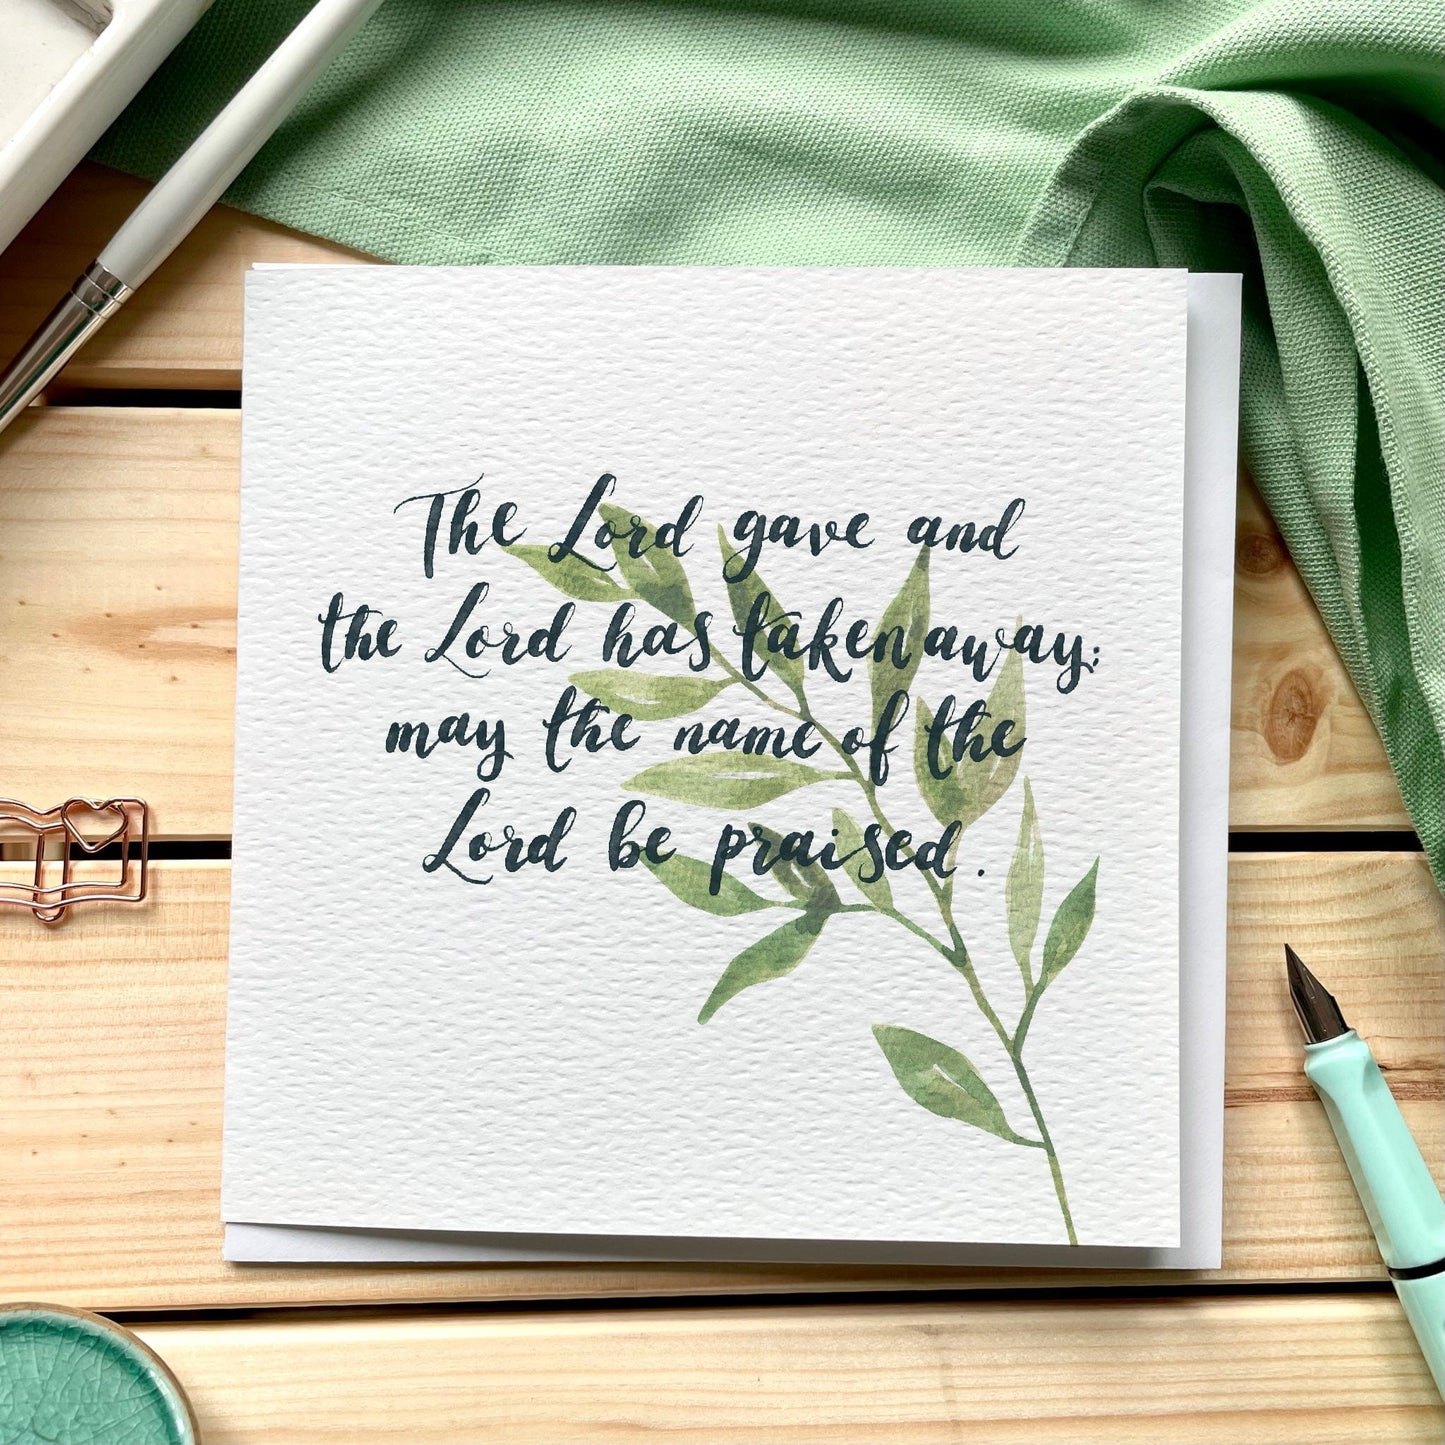 The Lord gave and
the Lord has taken away;
may the name of the
Lord be praised.